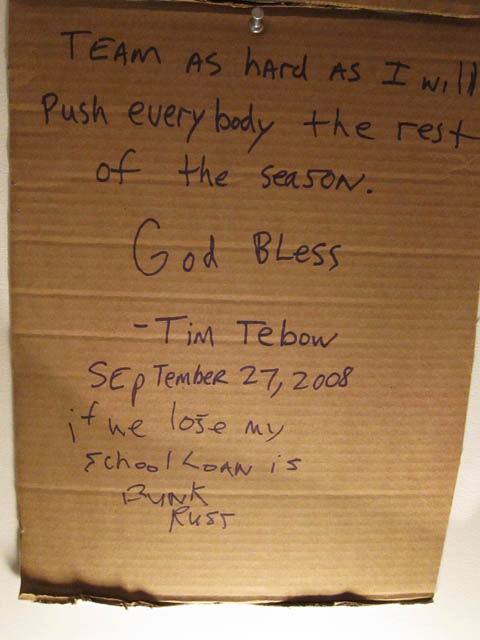 TEAM AS hARd AS I will
Push everybody the rest
of the season.
God BLess
- Tim Tebow
SEpTember 27, 2008
if we lose my
school LOAN is
BUNK
RUST